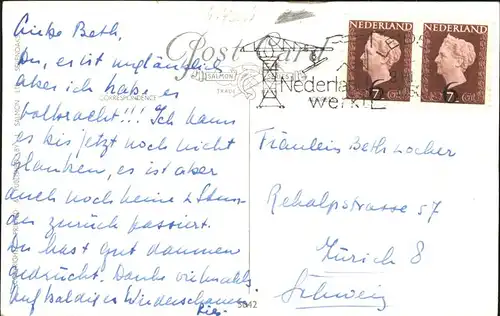 Liebe Beth,
Du, es ist unglaublich
aber ich habe es
vollbracht!!! Ich kann
es bis jetzt noch nicht
glauben, es ist aber
auch noch keine 2 Stun-
den zurück passiert.
Du hast gut daumen
gedrückt. Danke vielmals.
Auf baldiges Wiederschauen
Post Card
SALMON
CORRESPONDENCE
NEDERLAND
NEDERLAND
7½ Cent
7½ Cent
Nederland
werkt
Fräulein Beth Locher
Rehalpstrasse 57
Zürich 8
Schweiz
5842